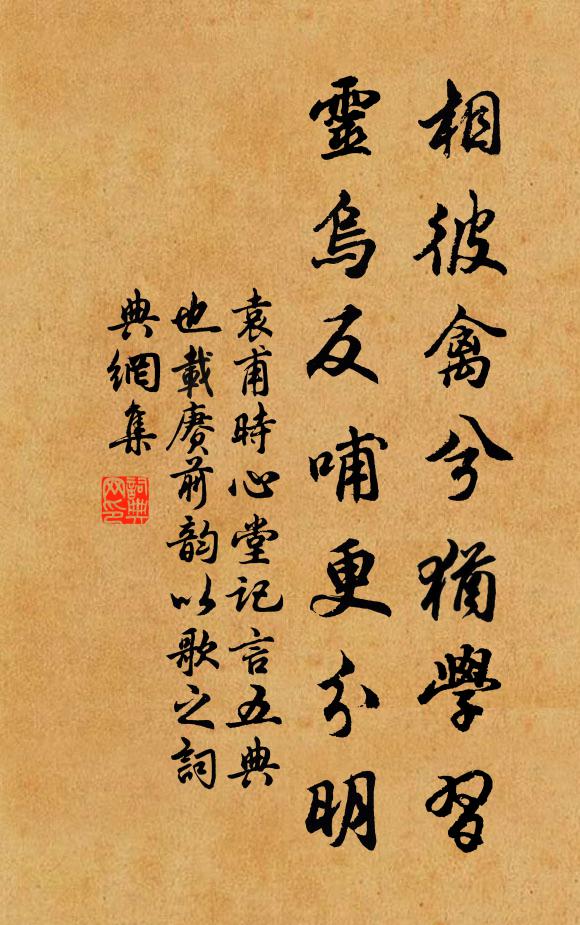 相彼禽兮猶學習
靈烏反哺更分明
袁甫時心堂記言五典
也載賡前韵以歌之詞
典網集
詞典網印